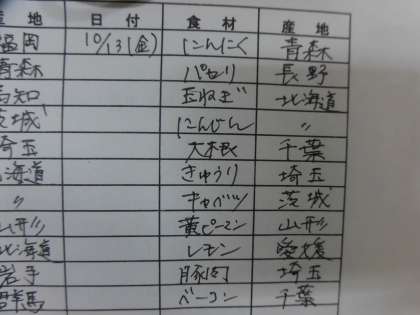 産地 日付 食材 産地
福岡 10/13(金) にんにく 青森
青森 パセリ 長野
高知 玉ねぎ 北海道
茨城 にんじん 〃
埼玉 大根 千葉
北海道 きゅうり 埼玉
〃 キャベツ 茨城
山形 黄ピーマン 山形
北海道 レモン 愛媛
岩手 豚肉 埼玉
群馬 ベーコン 千葉